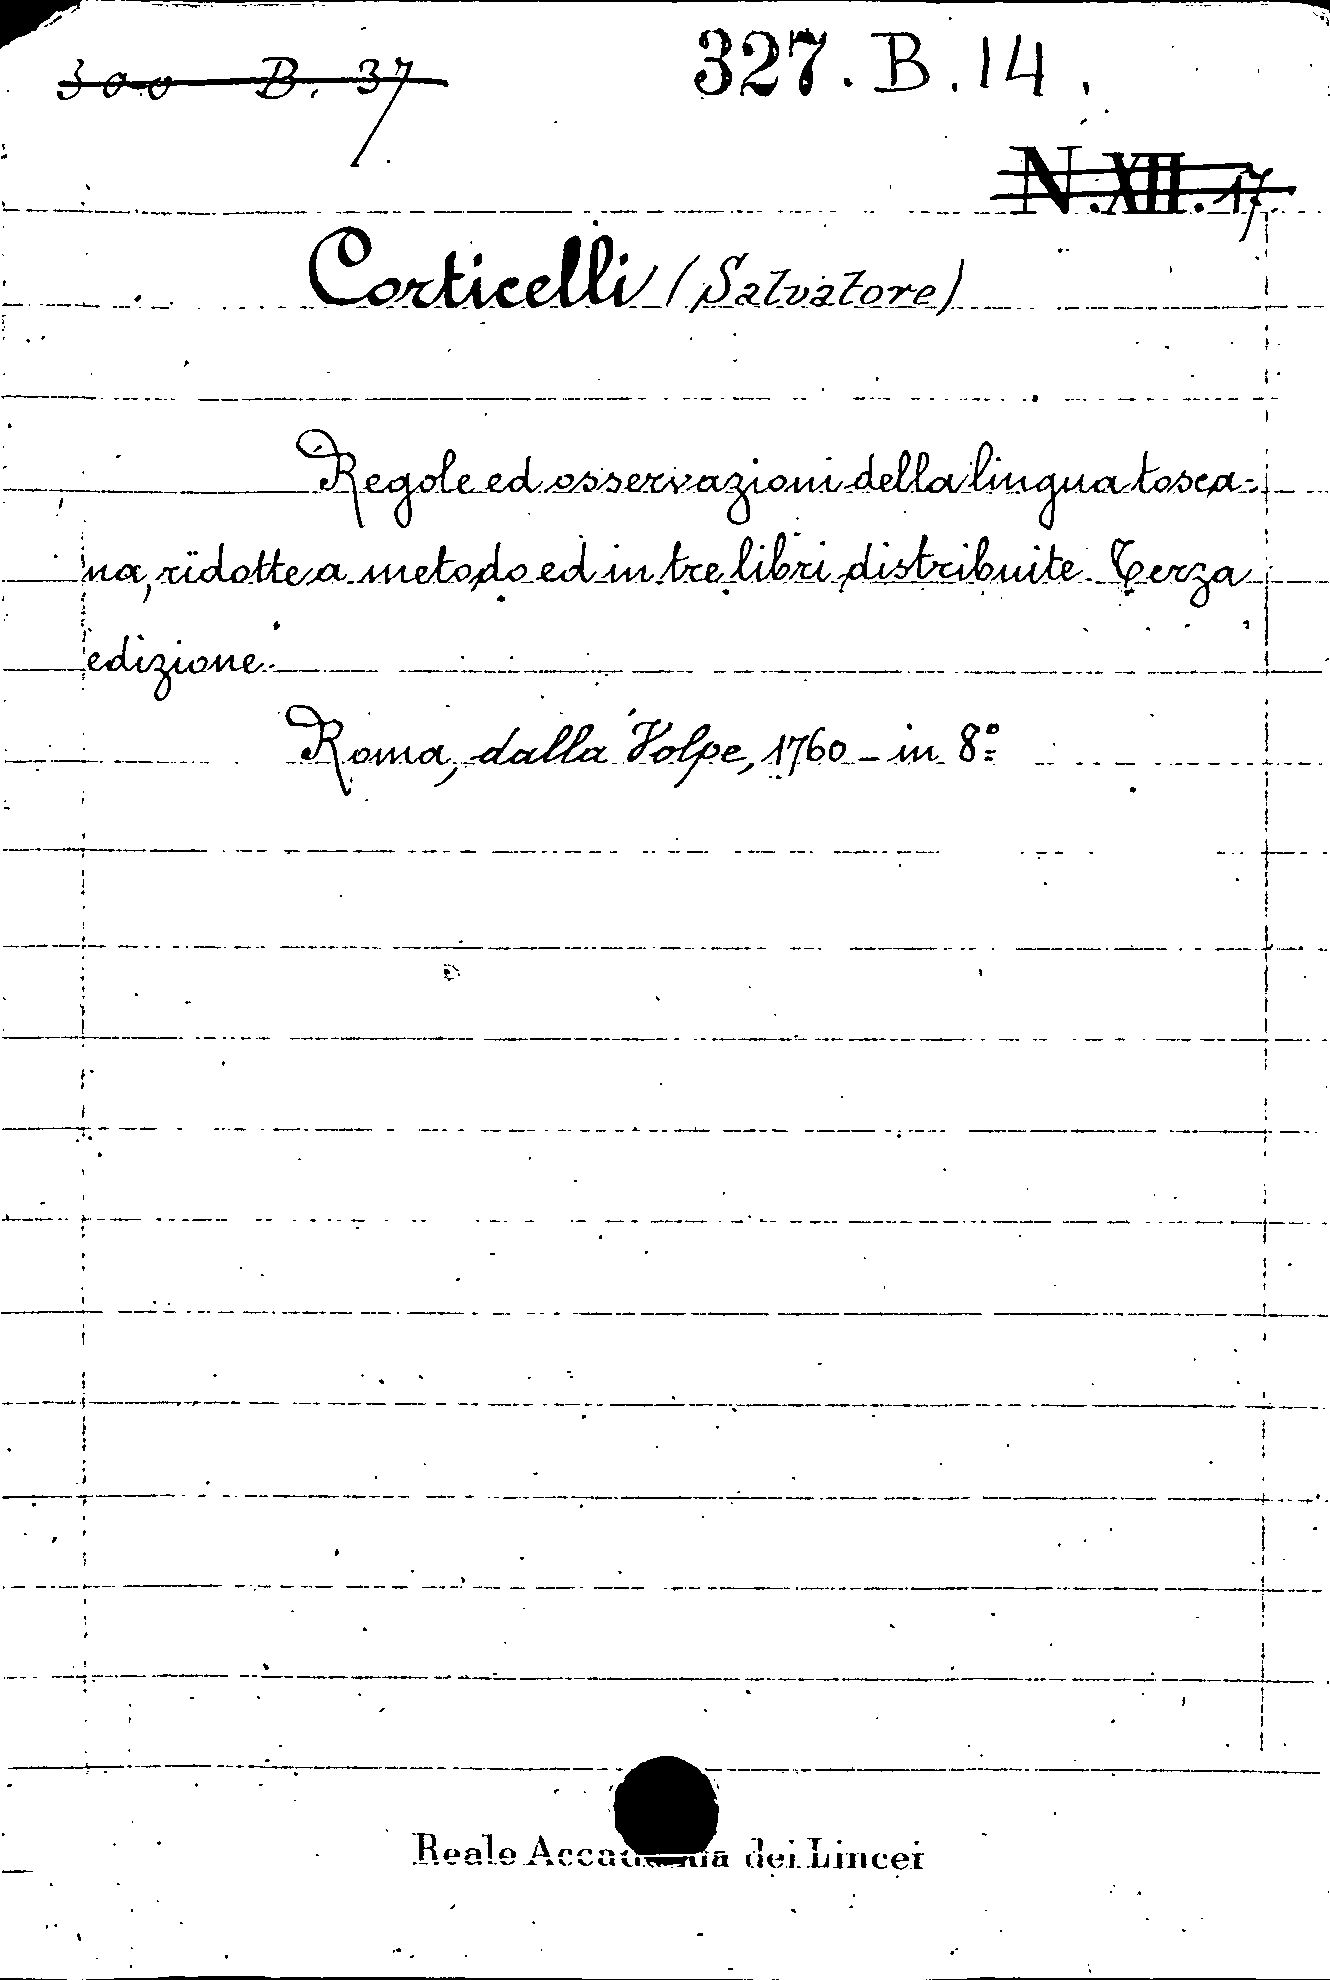 300 B. 37
327.B.14.
N.XII.17
Corticelli (Salvatore)
Regole ed osservazioni della lingua tosca-
na, ridotte a metodo ed in tre libri distribuite. Terza
edizione.
Roma, dalla Volpe, 1760 - in 8º
Reale Accademia dei Lincei